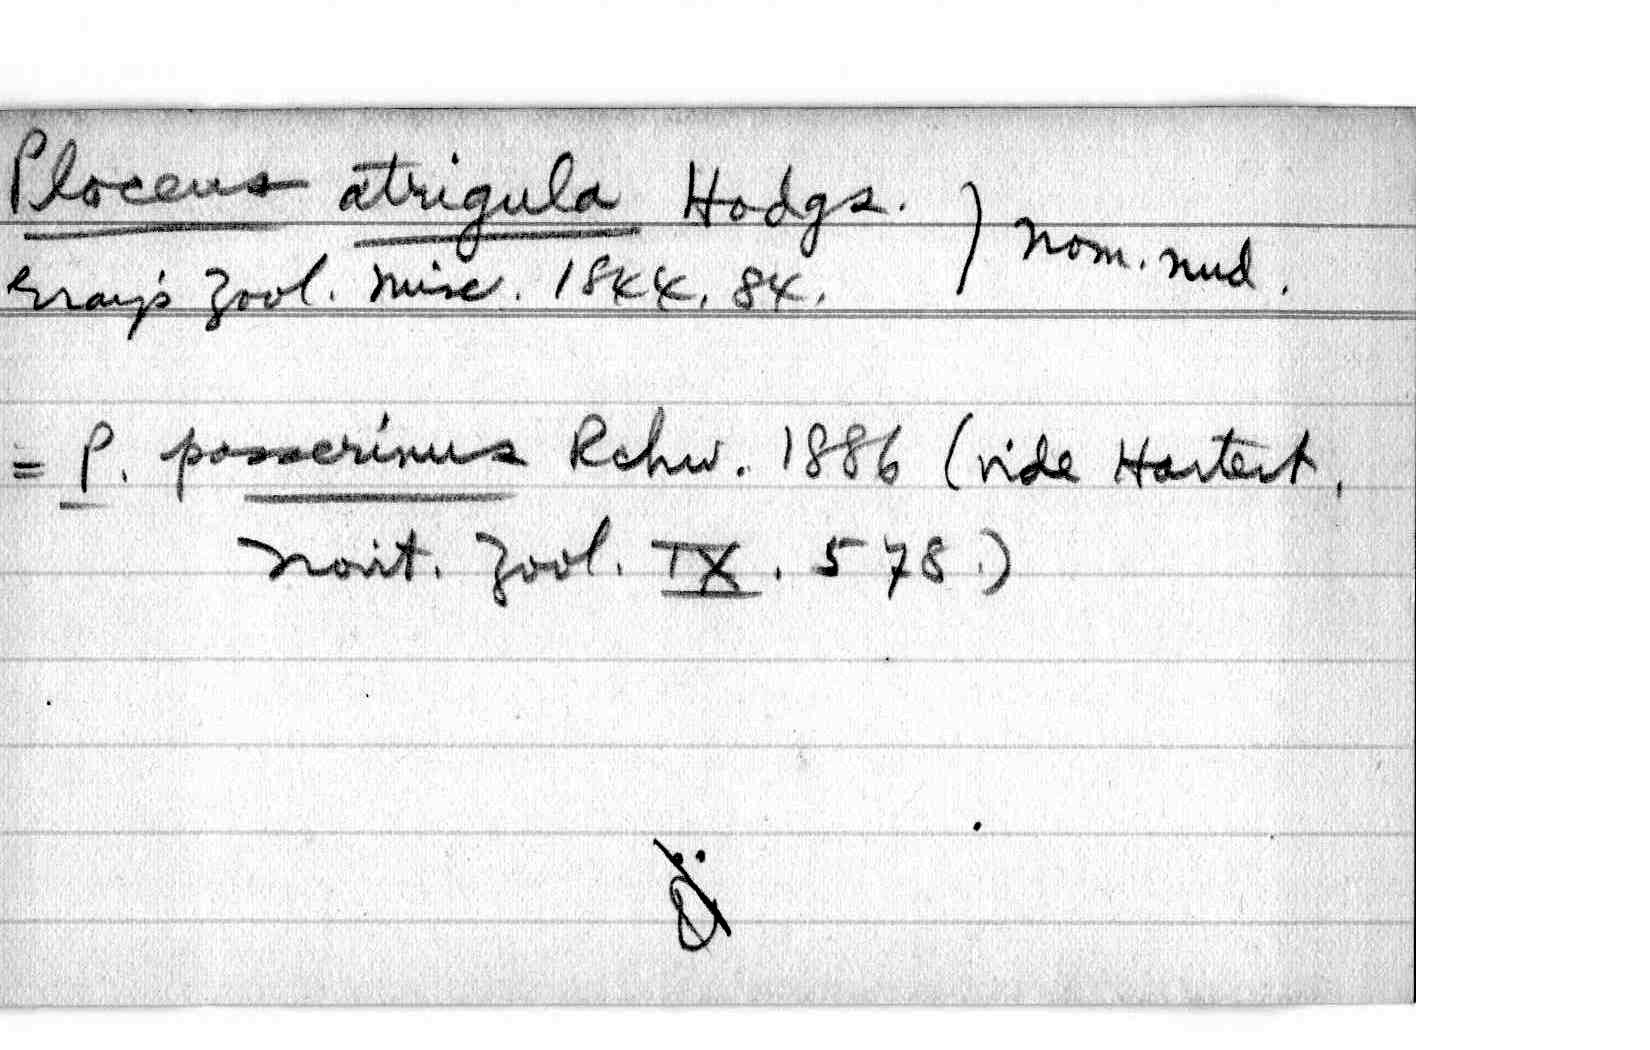 Ploceus atrigula Hodgs. ) nom. nud.
Gray's Zool. Misc. 1844, 84.
= P. passerinus Rchw. 1886 (vide Hartert,
Novit. Zool. IX. 578.)